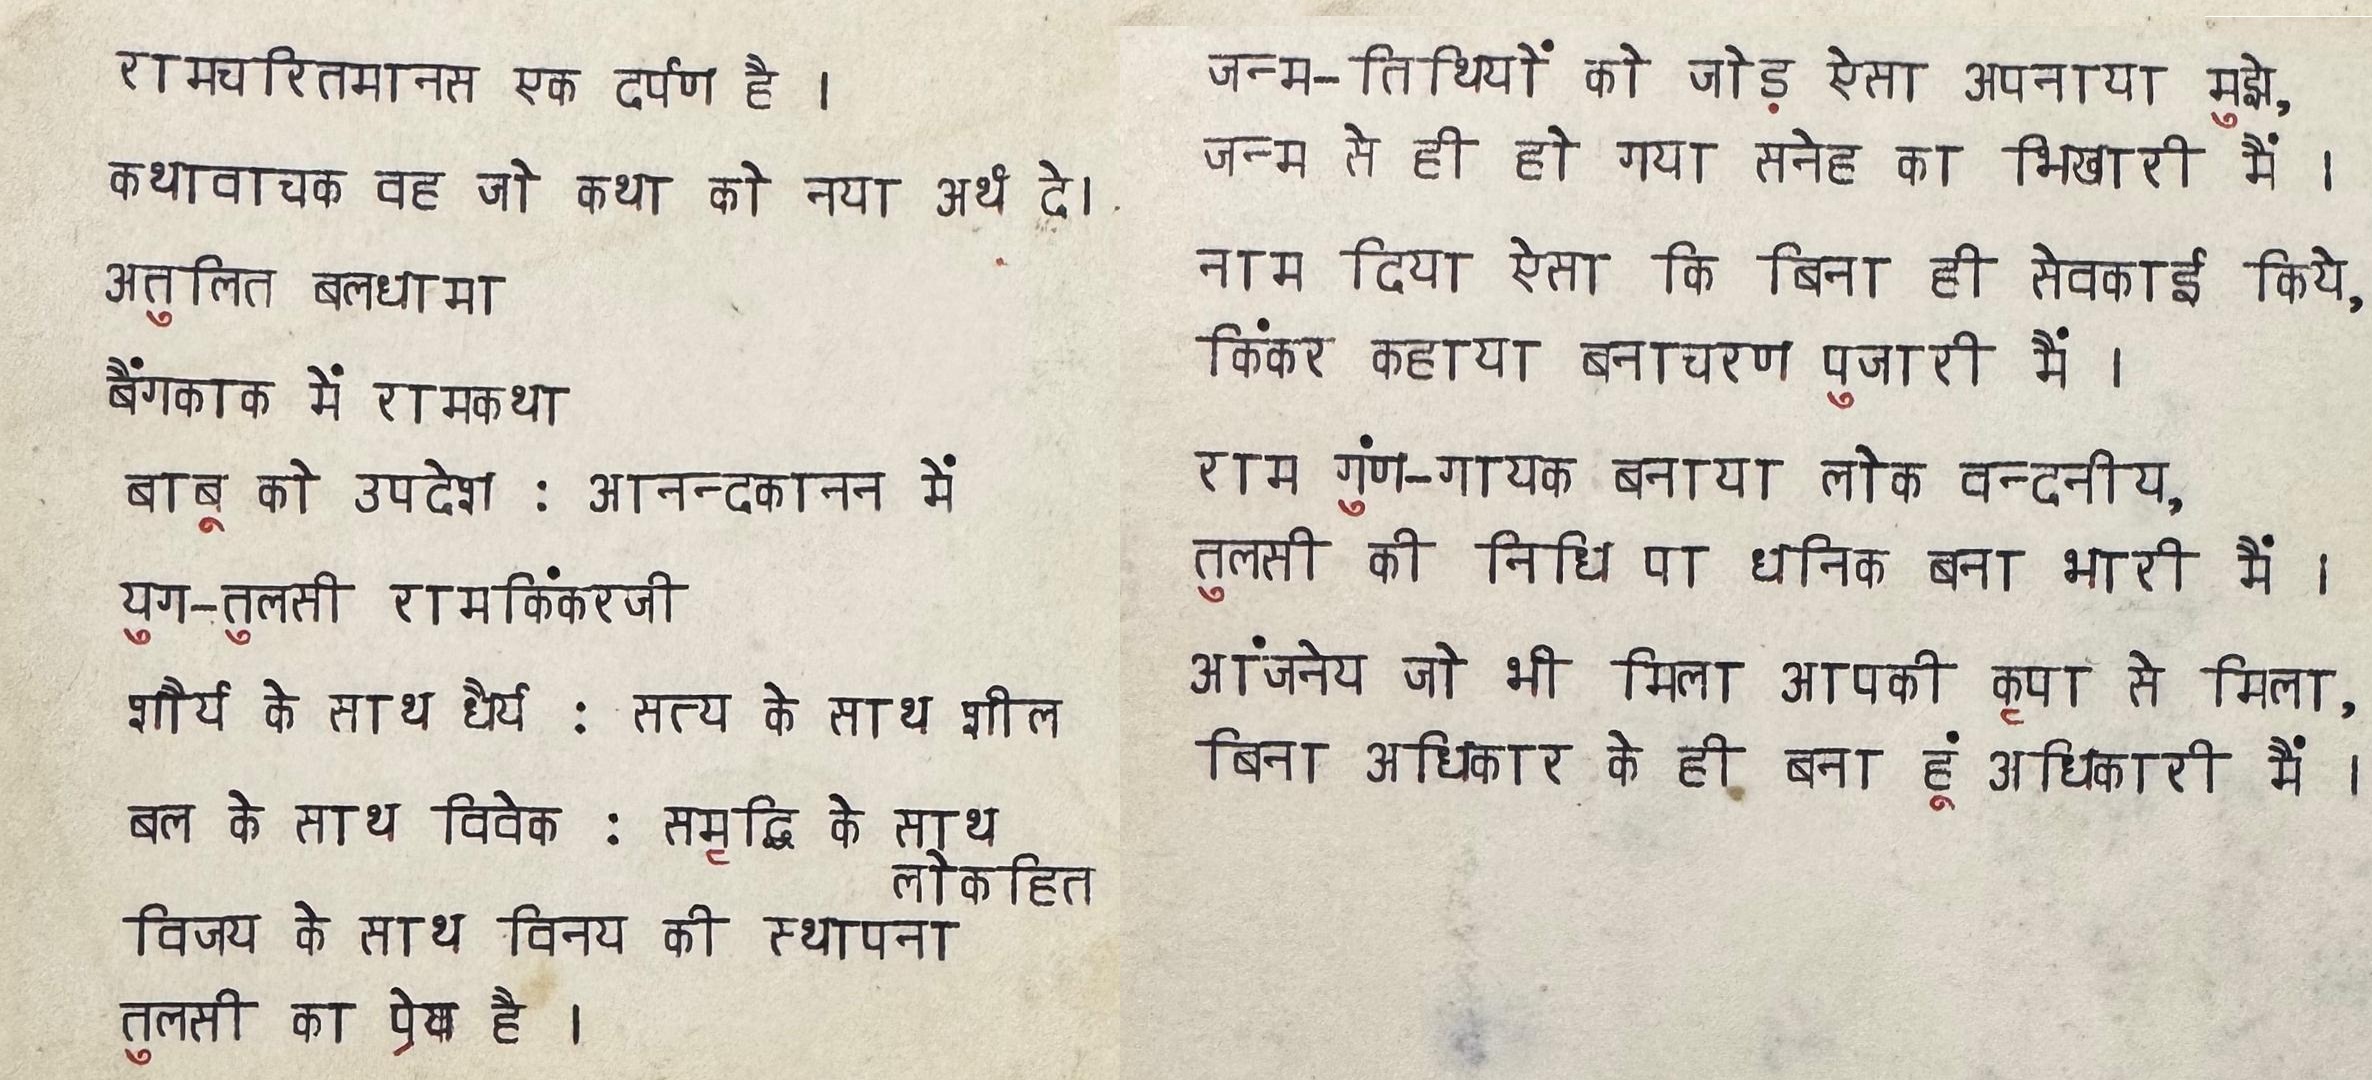 रामचरितमानस एक दर्पण है ।
कथावाचक वह जो कथा को नया अर्थ दे।
अतुलित बलधामा
बैंगकाक में रामकथा
बाबू को उपदेश : आनन्दकानन में
युग-तुलसी रामकिंकरजी
शौर्य के साथ धैर्य : सत्य के साथ शील
बल के साथ विवेक : समृद्धि के साथ
लोकहित
विजय के साथ विनय की स्थापना
तुलसी का है ।
जन्म-तिथियों को जोड़ ऐसा अपनाया मुझे,
जन्म से ही हो गया सनेह का भिखारी मैं ।
नाम दिया ऐसा कि बिना ही सेवकाई किये,
किंकर कहाया बनाचरण पुजारी मैं ।
राम गुंण-गायक बनाया लोक वन्दनीय,
तुलसी की निधि पा धनिक बना भारी मैं ।
आंजनेय जो भी मिला आपकी कृपा से मिला,
बिना अधिकार के ही बना हूं अधिकारी मैं ।